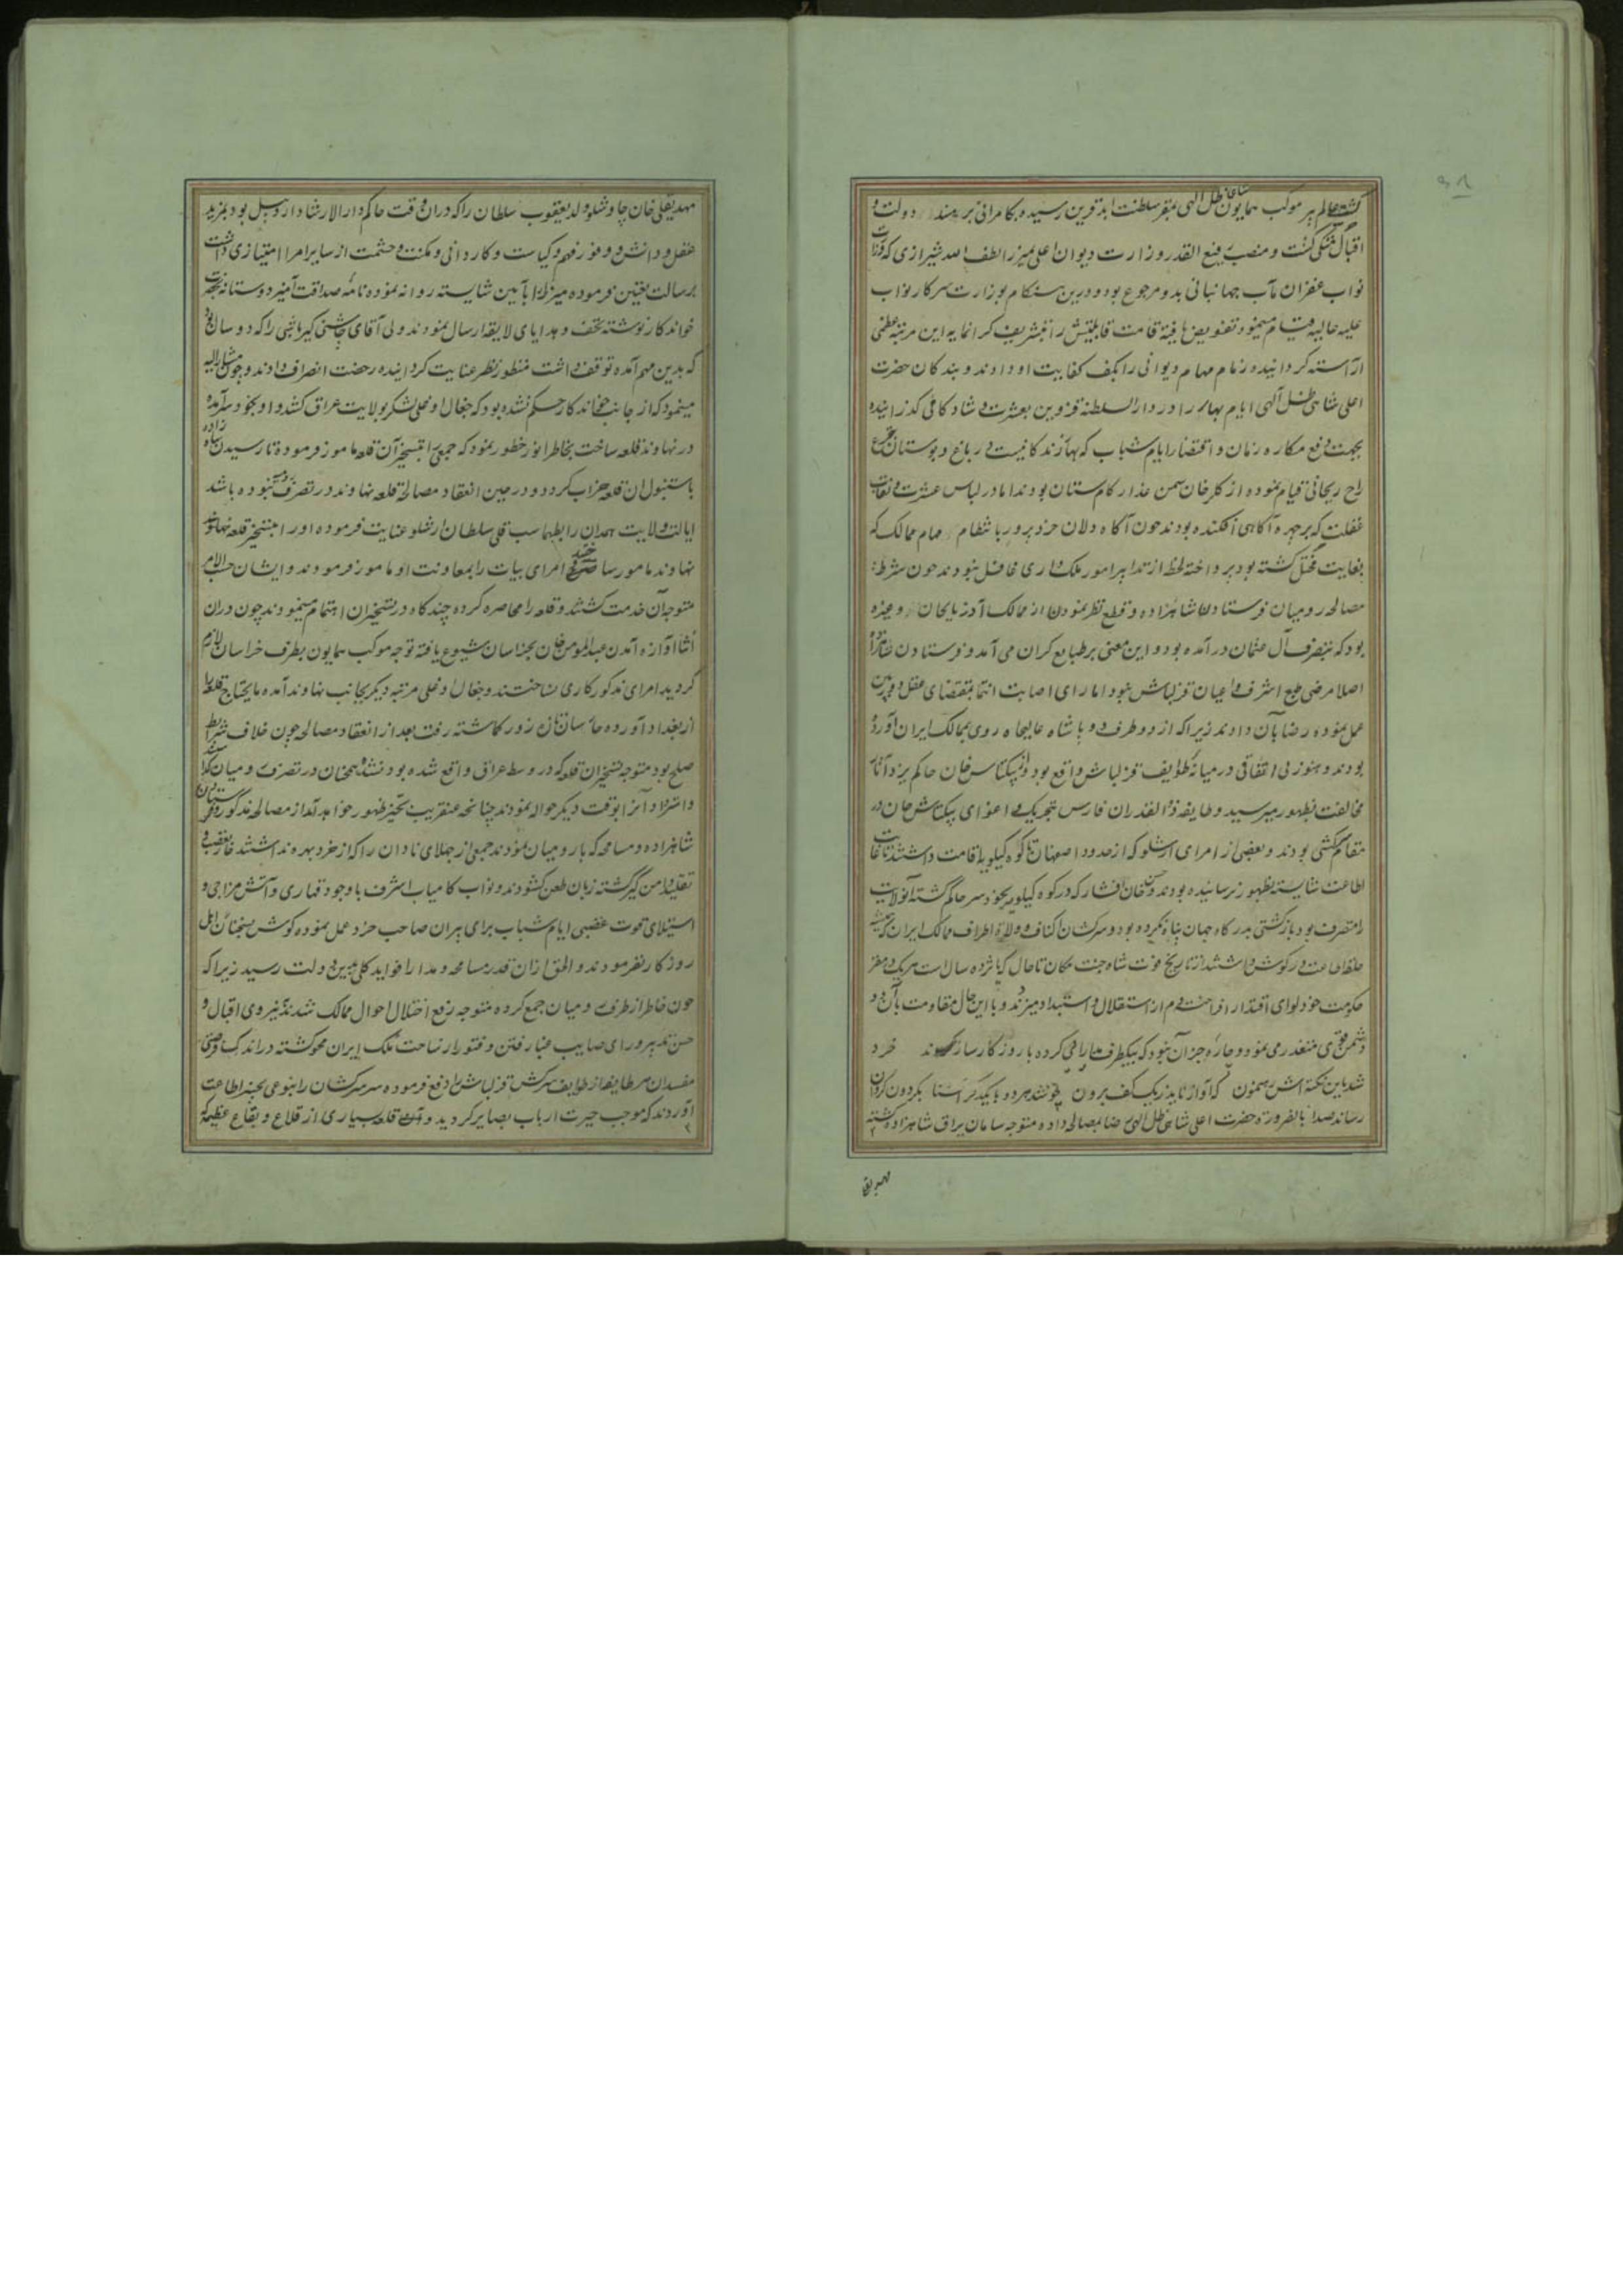 گشته عالم هر موکب همایون شاهی ظل الهی بمقر سلطنت ابد قرین رسیده بکامرانی بر مسند دولت و
اقبال متمکن گشت و منصب رفیع القدر وزارت دیوان اعلی بمیرزا لطف الله شیرازی که وزارت
نواب غفران مآب جهانبانی بدو مرجوع بود و درین هنگام بوزارت سرکار نواب
علیه عالیه قیام مینمود تفویض یافته قامت قابلیتش را بتشریف گرانمایه این مرتبه عظمی
آراسته گردانیده زمام مهام دیوانی را بکف کفایت او دادند و بندگان حضرت
اعلی شاهی ظل آلهی ایام بهار را در دار السلطنه قزوین بعشرت و شادکامی گذرانیده
بجهت دفع مکاره زمان و اقتضار ایام شباب که بهار زندگانیست در باغ و بوستان بتجرع
راح ریحانی قیام نموده از گلرخان سمن عذار کام ستان بودند اما در لباس عشرت و نقاب
غفلت که بر چهره آگاهی افکنده بودند چون آگاه دلان خرد پرور بانتظام مهام ممالک که
بغایت مختل گشته بود پرداخته لحظه از تدابیر امور ملک داری غافل نبودند چون شرط
مصالحه رومیان فرستادن شاهزاده و قطع نظر نمودن از ممالک آذربایجان و غیره
بود که بتصرف آل عثمان درآمده بود و این معنی بر طبایع گران می آمد و فرستادن شاهزاده
اصلا مرضی طبع اشرف و اعیان قزلباش نبود اما رای اصابت انتما بمقتضای عقل دوربین
عمل نموده رضا بآن دادند زیرا که از دو طرف دو پادشاه عالیجاه روی بممالک ایران آورده
بودند و هنوز بی اتفاقی در میانه طوایف قزلباش واقع بود و از بیکتاش خان حاکم یزد آثار
مخالفت بظهور میرسید و طایفه ذوالقدران فارس بتحریک و اغوای بیکتاش خان در
مقام سرکشی بودند و بعضی از امرای ارشلو که از حدود اصفهان تا کوه کیلویه اقامت داشتند تا غایت
اطاعت شایسته بظهور نرسانیده بودند و حسن خان افشار که در کوه کیلویه بخود سر حاکم گشته آنولایت
را متصرف بود بازگشتی بدرگاه جهان پناه نکرده بود و سرکشان اکناف و ولاة اطراف ممالک ایران که همیشه
حلقه اطاعت در گوش داشتند از تاریخ فوت شاه جنت مکان تا حال که پانزده سال است هر یک در مقر
حکومت خود لوای اقتدار افراخته دم از استقلال و استبداد میزدند و با این حال مقاومت با آن دو
دشمن قوی متعذر می نمود و چاره جز آن نبود که بیکطرف مدارائی کرده با روزگار سازگار شوند خرد
شد باین نکته اش رهنمون که آواز ناید ز یک کف برون چو شد هر دو با یکدگر آشنا بگردون گردان
رساند صدا بالضرورة حضرت اعلی شاهی ظل الهی رضا بمصالحه داده متوجه سامان یراق شاهزاده گشته
مهدیقلی
مهدیقلی خان چاوشلو ولد یعقوب سلطان را که در آن وقت حاکم دار الارشاد اردبیل بود بمزید
عقل و دانش و وفور فهم و کیاست و کاردانی و مکنت و حشمت از سایر امرا امتیازی داشت
برسالت تعیین فرموده میرزا را بآیین شایسته روانه نموده نامه صداقت آمیز دوستانه بحضرت
خواندکار نوشته تحف و هدایای لایقه ارسال نمودند و ولی آقای چاشنی گیر باشی را که دو سال بود
که بدین مهم آمده توقف داشت منظور نظر عنایت گردانیده رخصت انصراف دادند و چون مشار الیه
مینمود که از جانب خواندکار حکم نشده بود که جغال اوغلی لشکر بولایت عراق کشد و او بخود سر آمده
در نهاوند قلعه ساخت بخاطر انور خطور نمود که جمعی را بتسخیر آن قلعه مامور فرموده تا رسیدن شاهزاده
باستنبول ان قلعه خراب گردد و در حین انعقاد مصالحه قلعه نهاوند در تصرف رومیه نبوده باشد
ایالت ولایت همدان را بطهماسب قلی سلطان ارشلو عنایت فرموده او را بتسخیر قلعه نهاوند
نهاوند مامور ساخته امرای بیات را بمعاونت او مامور فرمودند و ایشان حسب الامر
متوجه آن خدمت گشتند و قلعه را محاصره کرده چند گاه در تسخیر ان اهتمام مینمودند چون در ان
اثنا آوازه آمدن عبدالمومن خان بخراسان شیوع یافته توجه موکب همایون بطرف خراسان لازم
گردید امرای مذکور کاری نساختند و جغال اوغلی مرتبه دیگر بجانب نهاوند آمده مایحتاج قلعه را
از بغداد آورده بود متوجه
صلح بود متوجه تسخیر ان قلعه که در وسط عراق واقع شده بود نشده همچنان در تصرف رومیان گذاشته
و استرداد آنرا بوقت دیگر حواله نمودند چنانچه عنقریب بحیز ظهور خواهد آمد از مصالحه مذکور و فرستادن
شاهزاده و مسامحه که با رومیان نمودند جمعی از جهلای نادان را که از خرد بهره نداشتند
تقلید دامن گیر گشته زبان طعن گشودند و نواب کامیاب اشرف با وجود قهاری و آتش مزاجی و
استیلای قوت غضبی ایام شباب برای پیران صاحب خرد عمل نموده گوش بسخنان اهل
روزگار نفرمودند و الحق از ان قدر مسامحه و مدارا فواید کلی بدین دولت رسید زیرا که
چون خاطر از طرف رومیان جمع کرده متوجه رفع اختلال احوال ممالک شدند به نیروی اقبال و
حسن تدبیر و رای صایب غبار فتن و فتور از ساحت ملک ایران محو گشته در اندک فرصتی
مفسدان هر طایفه از طوایف سرکش قزلباش را دفع فرموده سر سرکشان را بنوعی بچنبر اطاعت
آوردند که موجب حیرت ارباب بصایر گردید و قلعه بسیاری از قلاع و بقاع عظیمه که